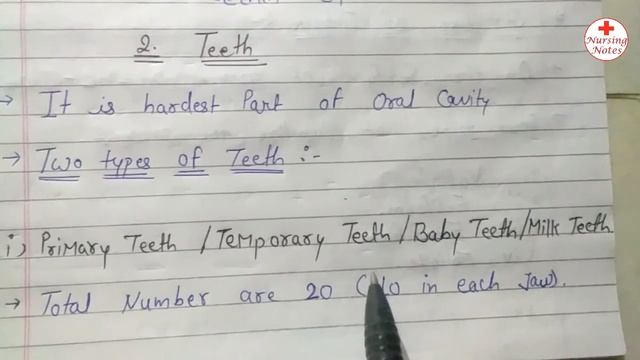 Nursing
Notes
2. Teeth
→ It is hardest Part of Oral Cavity
→ Two types of Teeth :-
i) Primary Teeth / Temporary Teeth / Baby Teeth / Milk Teeth
→ Total Number are 20 (10 in each Jaw).